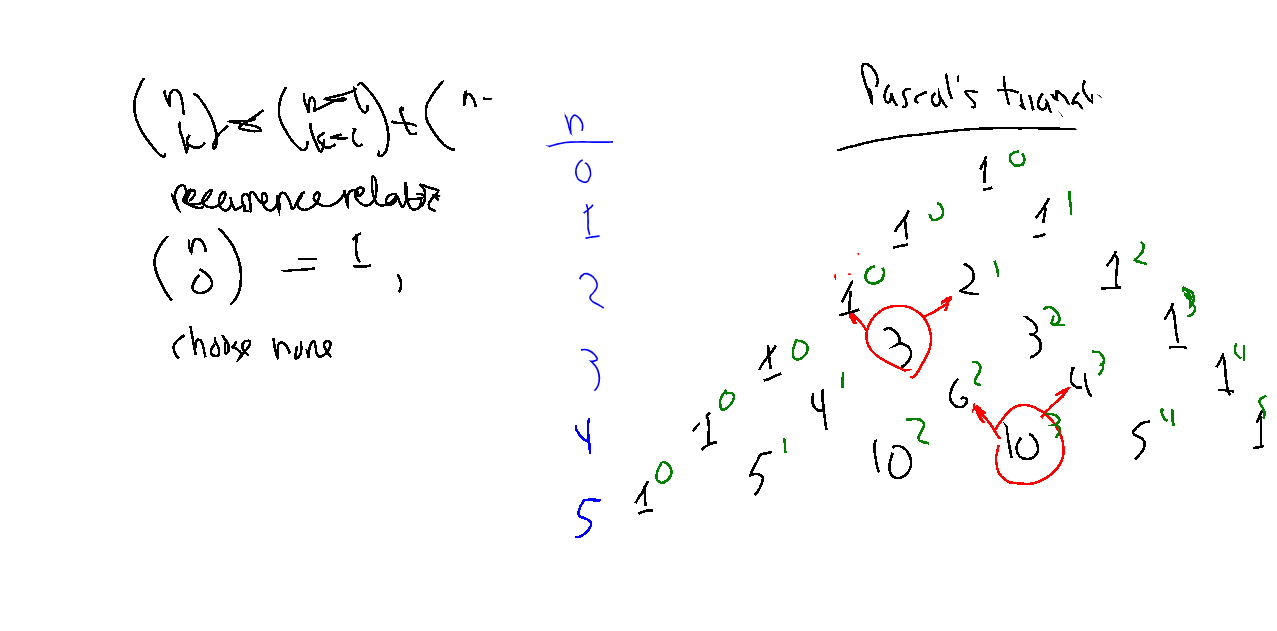 (n k) = (n-1 k-1) + (n-
recurrence relati
(n 0) = 1,
choose none
n
0
1
2
3
4
5
Pascal's triangl
1 0
1 0 1 1
1 0 2 1 1 2
1 0 3 3 2 1 3
1 0 4 1 6 2 4 3 1 4
1 0 5 1 10 2 10 3 5 4 1 5